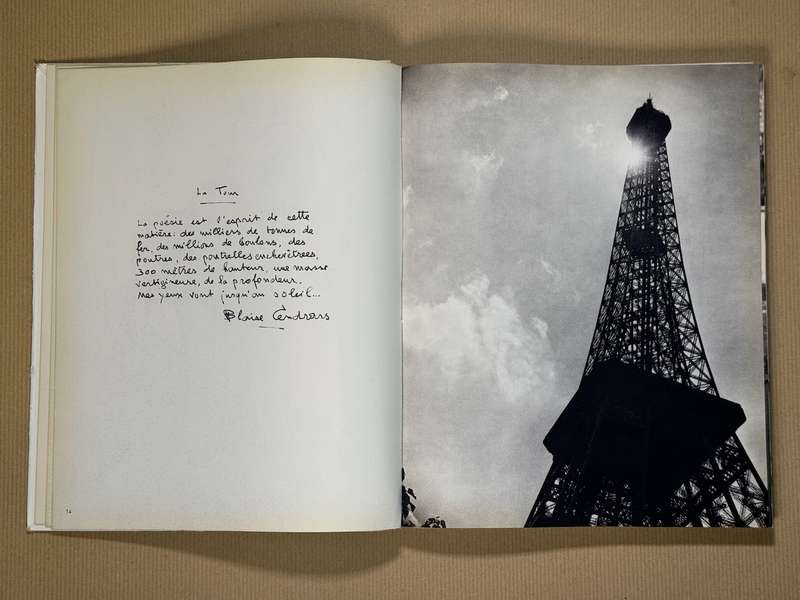 La Tour
La poésie est l'esprit de cette
matière: des milliers de tonnes de
fer, des millions de boulons, des
poutres, des poutrelles enchevêtrées,
300 mètres de hauteur, une masse
vertigineuse, de la profondeur.
Mes yeux vont jusqu'au soleil...
Blaise Cendrars
14